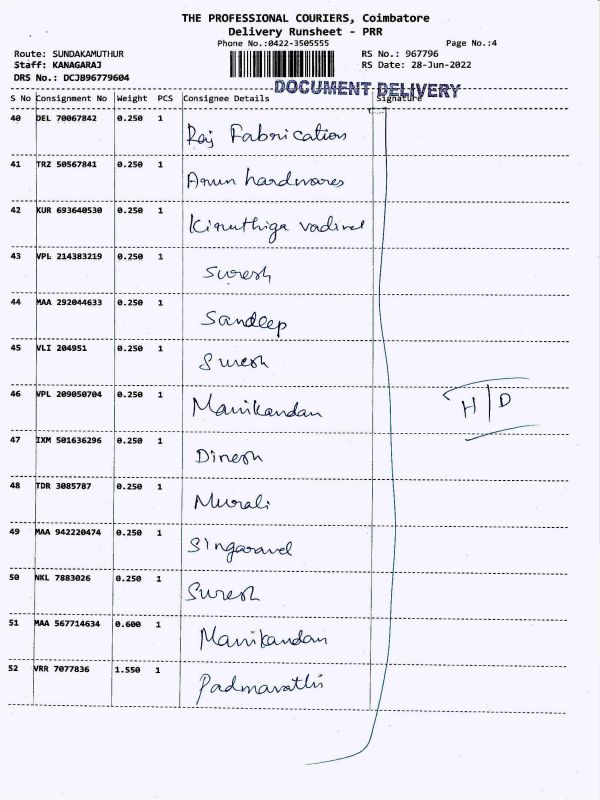 THE PROFESSIONAL COURIERS, Coimbatore
Delivery Runsheet - PRR
Phone No.:0422-3505555
Page No.:4
Route: SUNDAKAMUTHUR
RS No.: 967796
Staff: KANAGARAJ
RS Date: 28-Jun-2022
DRS No.: DCJB96779604
DOCUMENT DELIVERY
S No Consignment No Weight PCS Consignee Details Signature
40 DEL 70067842 0.250 1 Raj Fabrication
41 TRZ 50567841 0.250 1 Arun hardwares
42 KUR 693640530 0.250 1 Kiruthiga vadivel
43 VPL 214383219 0.250 1 Suresh
44 MAA 292044633 0.250 1 Sandeep
45 VLI 204951 0.250 1 Suresh
46 VPL 209050704 0.250 1 Manikandan
H/D
47 IXM 501636296 0.250 1 Dinesh
48 TDR 3085787 0.250 1 Murali
49 MAA 942220474 0.250 1 Singaravel
50 NKL 7883026 0.250 1 Suresh
51 MAA 567714634 0.600 1 Manikandan
52 VRR 7077836 1.550 1 Padmavathi